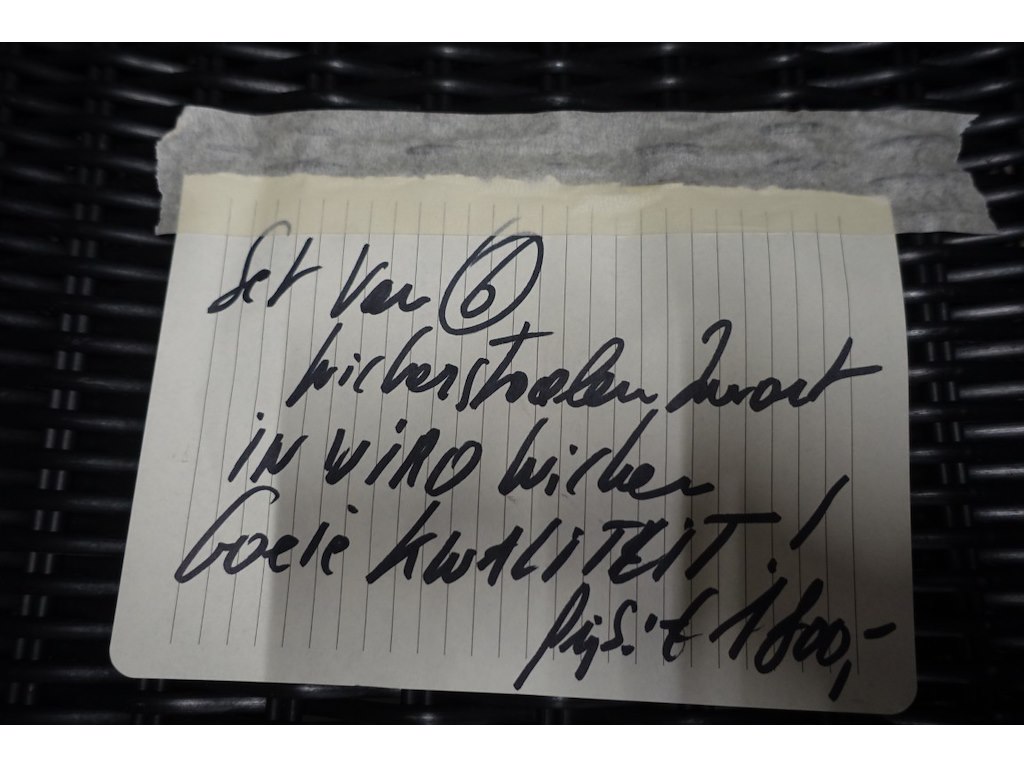 Set van 6
wickerstoelen zwart
IN WIRO wicker
Goeie KWALITEIT!
prijs: € 1800,-